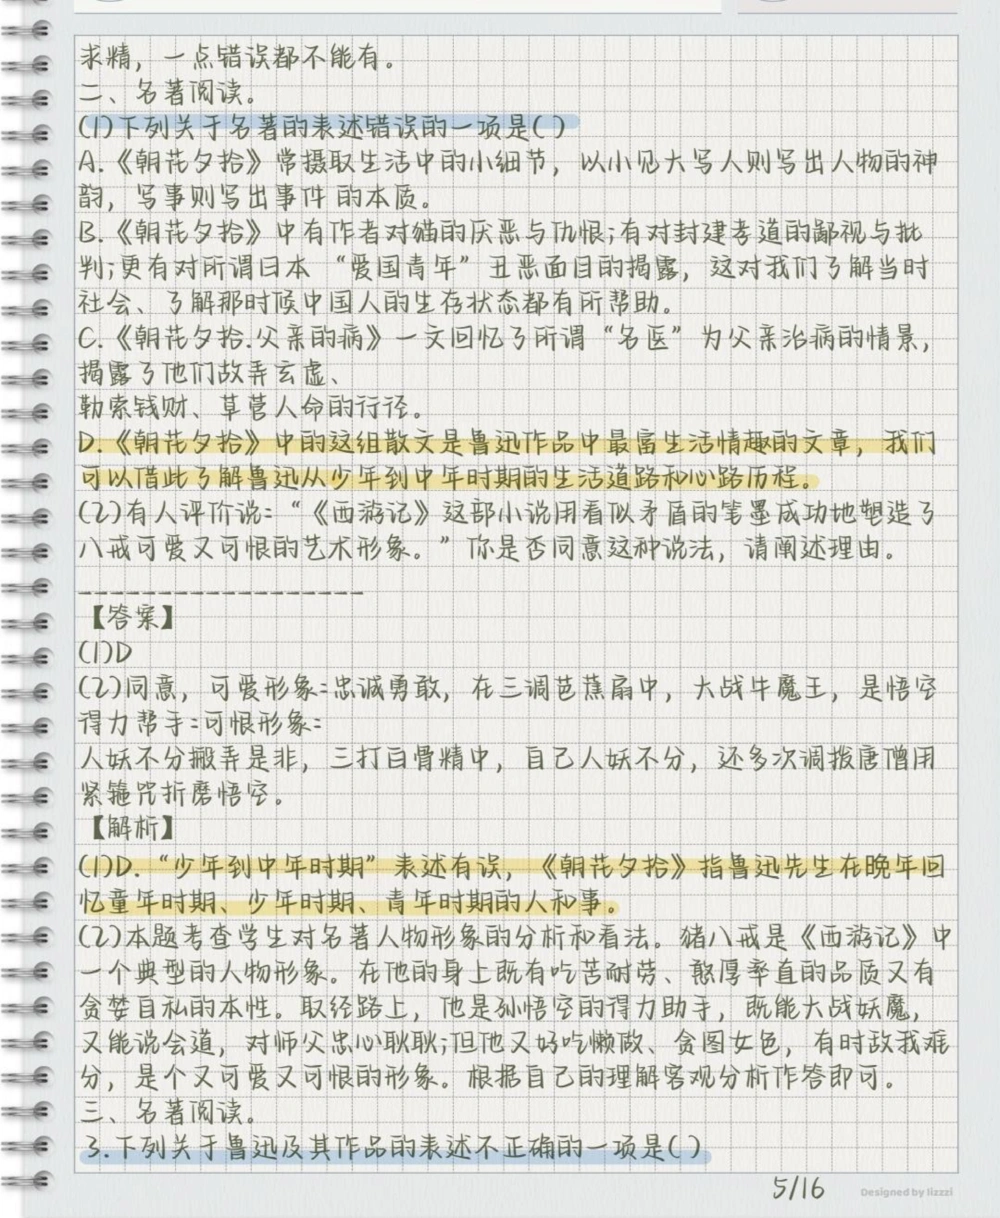 求精，一点错误都不能有。
二、名著阅读。
(1)下列关于名著的表述错误的一项是( )
A.《朝花夕拾》常摄取生活中的小细节，以小见大写人则写出人物的神
韵，写事则写出事件 的本质。
B.《朝花夕拾》中有作者对猫的厌恶与仇恨;有对封建孝道的鄙视与批
判;更有对所谓日本 “爱国青年”丑恶面目的揭露，这对我们了解当时
社会、了解那时候中国人的生存状态都有所帮助。
C.《朝花夕拾.父亲的病》一文回忆了所谓“名医”为父亲治病的情景，
揭露了他们故弄玄虚、
勒索钱财、草菅人命的行径。
D.《朝花夕拾》中的这组散文是鲁迅作品中最富生活情趣的文章，我们
可以借此了解鲁迅从少年到中年时期的生活道路和心路历程。
(2)有人评价说:“《西游记》这部小说用看似矛盾的笔墨成功地塑造了
八戒可爱又可恨的艺术形象。”你是否同意这种说法，请阐述理由。
__________________
【答案】
(1)D
(2)同意，可爱形象:忠诚勇敢，在三调芭蕉扇中，大战牛魔王，是悟空
得力帮手:可恨形象:
人妖不分搬弄是非，三打白骨精中，自己人妖不分，还多次调拨唐僧用
紧箍咒折磨悟空。
【解析】
(1)D.“少年到中年时期”表述有误，《朝花夕拾》指鲁迅先生在晚年回
忆童年时期、少年时期、青年时期的人和事。
(2)本题考查学生对名著人物形象的分析和看法。猪八戒是《西游记》中
一个典型的人物形象。在他的身上既有吃苦耐劳、憨厚率直的品质又有
贪婪自私的本性。取经路上，他是孙悟空的得力助手，既能大战妖魔，
又能说会道，对师父忠心耿耿;但他又好吃懒做、贪图女色，有时敌我难
分，是个又可爱又可恨的形象。根据自己的理解客观分析作答即可。
三、名著阅读。
3.下列关于鲁迅及其作品的表述不正确的一项是( )
5/16
Designed by lizzzi